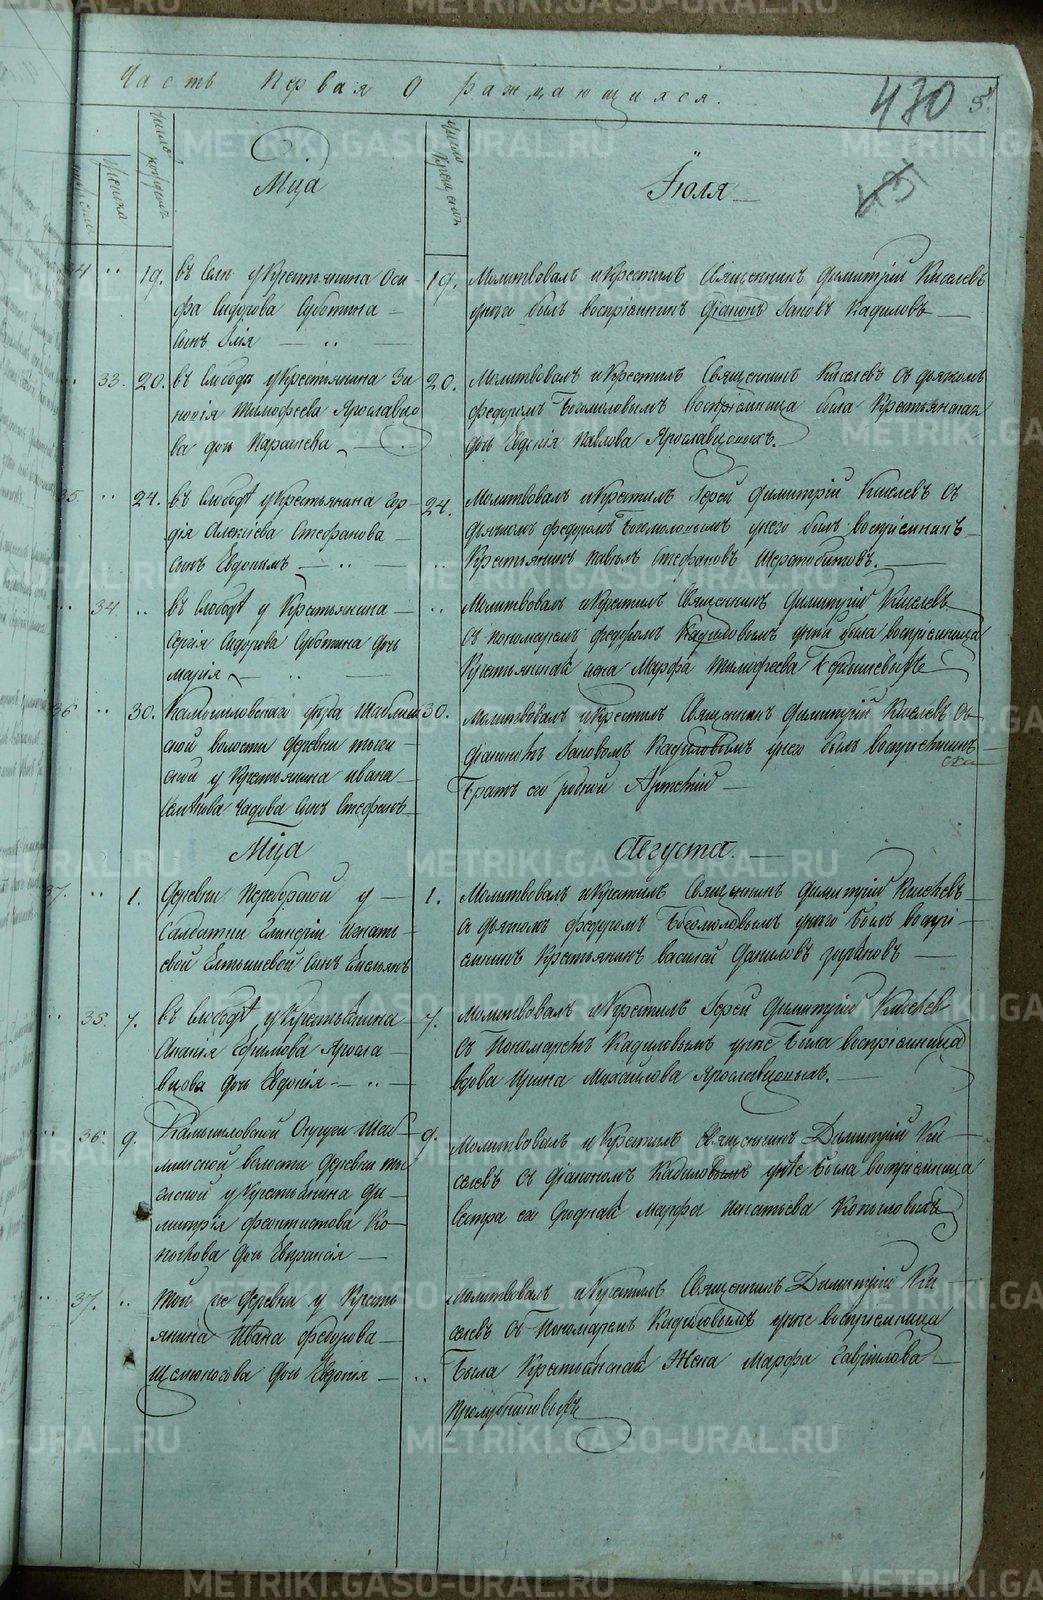 Часть Первая О раждающихся.
470
5.
431
мужеска
женска
число рожденія
Мца
число крещенія
Іюля
34 " 19. въ Селѣ у Крестьянина Оси-
фа Сидорова Суботина
сынъ Илія
19. Молитвовалъ и Крестилъ Священникъ Димитрій Киселевъ
у него былъ воспріемникъ Діаконъ Іаковъ Кадиловъ
" 33. 20. въ Слободѣ у Крестьянина Зи-
новія Тимофеева Ярославцо-
ва дочь Параскева
20. Молитвовалъ и Крестилъ Священникъ Киселевъ съ дьячкомъ
Федоромъ Богомоловымъ воспріемница была Крестьянская
дочь Евдокія Павлова Ярославцовыхъ.
35. " 24. въ Слободѣ у Крестьянина Сер-
гія Алексіева Стефанова
сынъ Евдокимъ
24. Молитвовалъ и Крестилъ Іерей Димитрій Киселевъ съ
дьячкомъ Федоромъ Богомоловымъ у него былъ воспріемникъ
Крестьянинъ Павелъ Стефановъ Шерстобитовъ.
" 34 " въ Слободѣ у Крестьянина
Сергія Сидорова Суботина дочь
Марія
" Молитвовалъ и Крестилъ Священникъ Димитрій Киселевъ
съ пономаремъ Федоромъ Кадиловымъ у ней была воспріемница
Крестьянская жена Марфа Тимофеева
36 " 30. Камышловскаго уѣзда
ской волости деревни
ской у Крестьянина Ивана
Чадова сынъ Стефанъ
30. Молитвовалъ и Крестилъ Священникъ Димитрій Киселевъ съ
діакономъ Іаковомъ Кадиловымъ у него былъ воспріемникъ
Братъ его родной
Мца
Августа.
37. " 1. Деревни Переборской у
Салдатки Гликеріи Игнать-
евой Елтышевой сынъ Емельянъ
1. Молитвовалъ и Крестилъ Священникъ Димитрій Киселевъ
съ дьячкомъ Федоромъ Богомоловымъ у него былъ воспрі-
емникъ Крестьянинъ Василей Даниловъ
" 35. 7. въ Слободѣ у Крестьянина
Ананія Ефимова Яросла-
вцова дочь Евдокія
7. Молитвовалъ и Крестилъ Іерей Димитрій Киселевъ
съ Пономаремъ Кадиловымъ у нее была воспріемница
вдова Ирина Михайлова Ярославцовыхъ.
" 36. 9. Камышловской Округи
волости деревни
у Крестьянина Ди-
митрія Феоктистова Ко-
дочь Евпраксія
9. Молитвовалъ и Крестилъ Священникъ Димитрій Ки-
селевъ съ діакономъ Кадиловымъ у нее была воспріемница
сестра ея Сродная Марфа Игнатьева Копыловыхъ
" 37. " Той же деревни у Кресть-
янина Ивана Федорова
дочь Евдокія
" Молитвовалъ и Крестилъ Священникъ Димитрій Ки-
селевъ съ Пономаремъ Кадиловымъ у нее воспріемница
была Крестьянская Жена Марфа Гавріилова